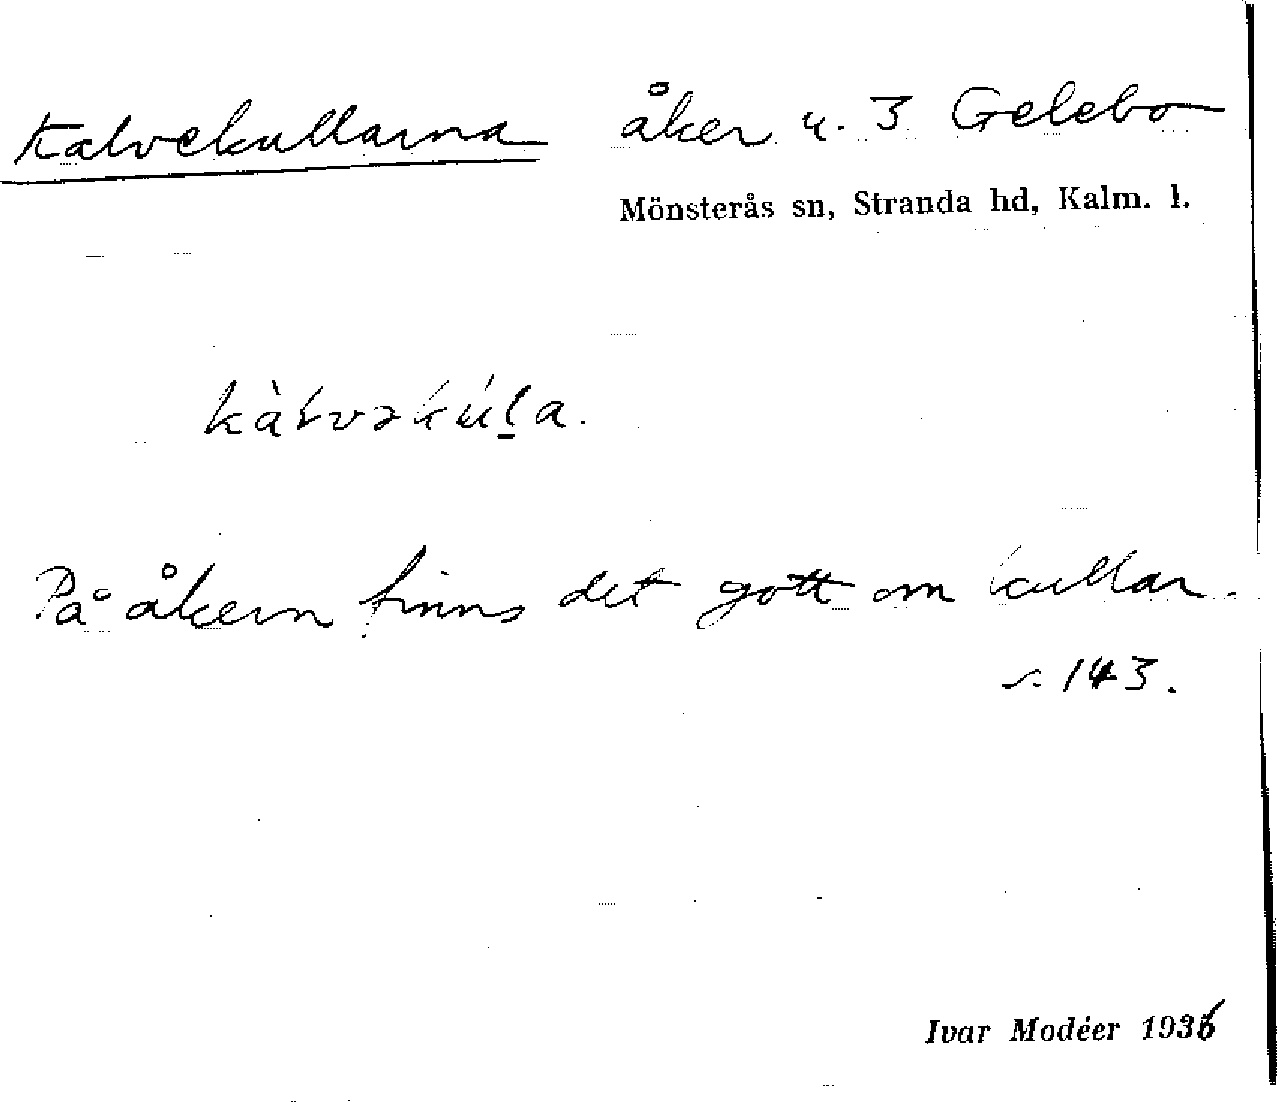 Kalvekullarna åker u. 3 Gelebo
Mönsterås sn, Stranda hd, Kalm. l.
På åkern finns det gott om kullar.
s. 143.
Ivar Modéer 1936